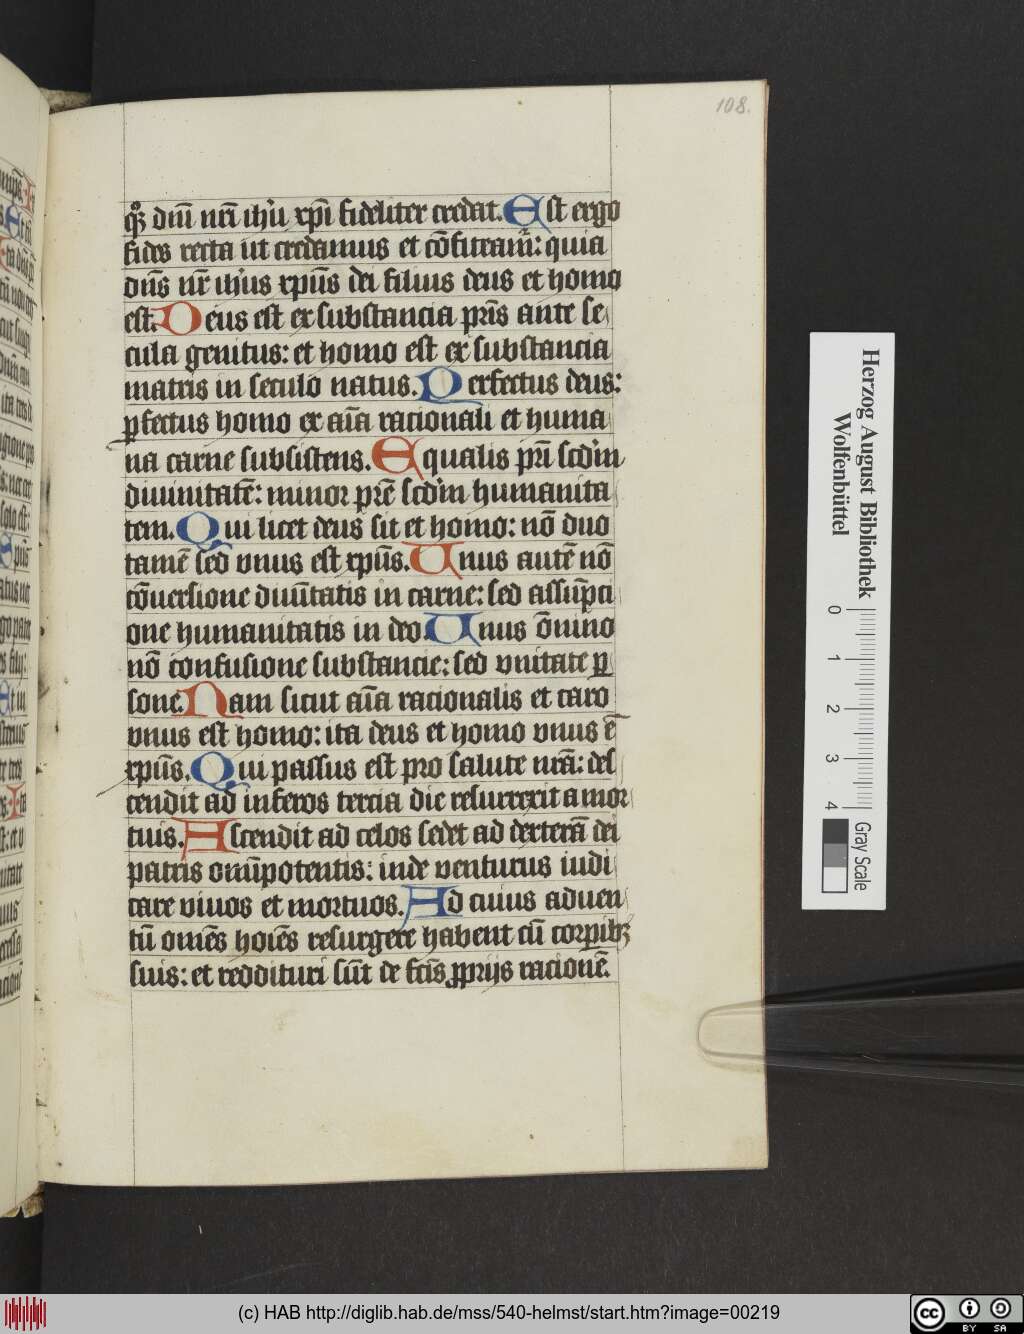 108.
qꝫ dn̄i nr̄i ihū xp̄i fideliter credat. Est ergo
fides recta ut credamus et cōfiteam̄: quia
dn̄s nr̄ ihūs xpūs dei filius deus et homo
est. Deus est ex substancia pr̄is ante se
cula genitus: et homo est ex substancia
matris in seculo natus. Perfectus deus:
ꝑfectus homo ex aīa racionali et huma
na carne subsistens. Equalis pr̄i scdm̄
diuinitatē: minor pr̄e scdm̄ humanita
tem. Qui licet deus sit et homo: nō duo
tamē sed vnus est xpūs. Unus autē nō
cōuersione diuītatis in carne: sed assūpci
one humanitatis in deo. Unus ōnino
nō confusione substancie: sed vnitate ꝑ
sone. Nam sicut aīa racionalis et caro
vnus est homo: ita deus et homo vnus ē
xpūs. Qui passus est pro salute nrā: des
cendit ad inferos tercia die resurrexit a mor
tuis. Ascendit ad celos sedet ad dexterā dei
patris omīpotentis: inde venturus iudi
care viuos et mortuos. Ad cuius aduen
tū omēs hoīes resurgere habent cū corꝑibꝫ
suis: et reddituri sūt de fcīs ꝓprijs racionē.
Herzog August Bibliothek
Wolfenbüttel
0 1 2 3 4
Gray Scale
(c) HAB http://diglib.hab.de/mss/540-helmst/start.htm?image=00219
cc BY SA